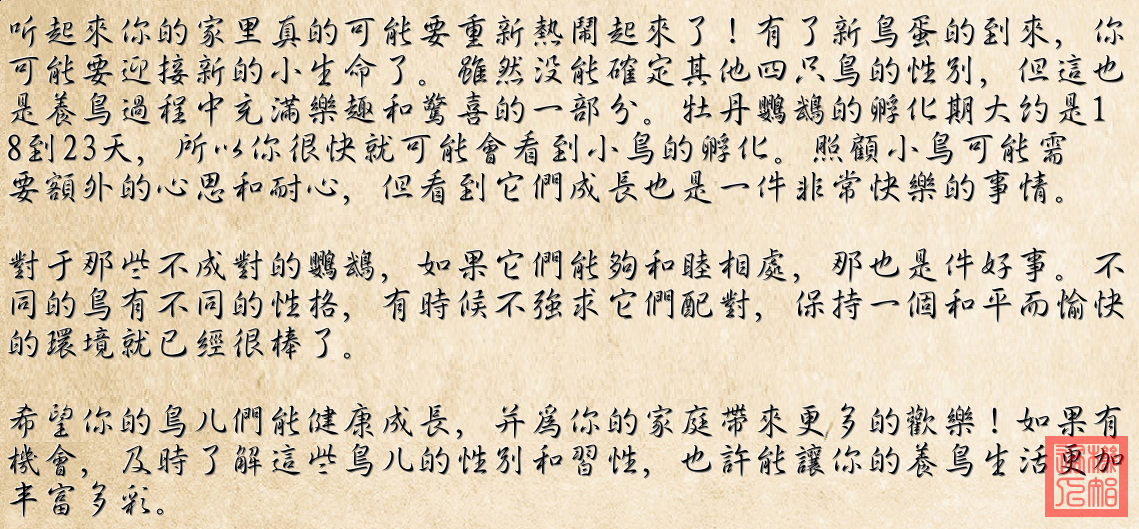 听起來你的家里真的可能要重新熱鬧起來了！有了新鳥蛋的到來，你
可能要迎接新的小生命了。雖然没能確定其他四只鳥的性别，但這也
是養鳥過程中充滿樂趣和驚喜的一部分。牡丹鹦鹉的孵化期大约是1
8到23天，所以你很快就可能會看到小鳥的孵化。照顧小鳥可能需
要額外的心思和耐心，但看到它們成長也是一件非常快樂的事情。
對于那些不成對的鹦鹉，如果它們能夠和睦相處，那也是件好事。不
同的鳥有不同的性格，有時候不強求它們配對，保持一個和平而愉快
的環境就已經很棒了。
希望你的鳥儿們能健康成長，并為你的家庭帶來更多的歡樂！如果有
機會，及時了解這些鳥儿的性别和習性，也許能讓你的養鳥生活更加
丰富多彩。